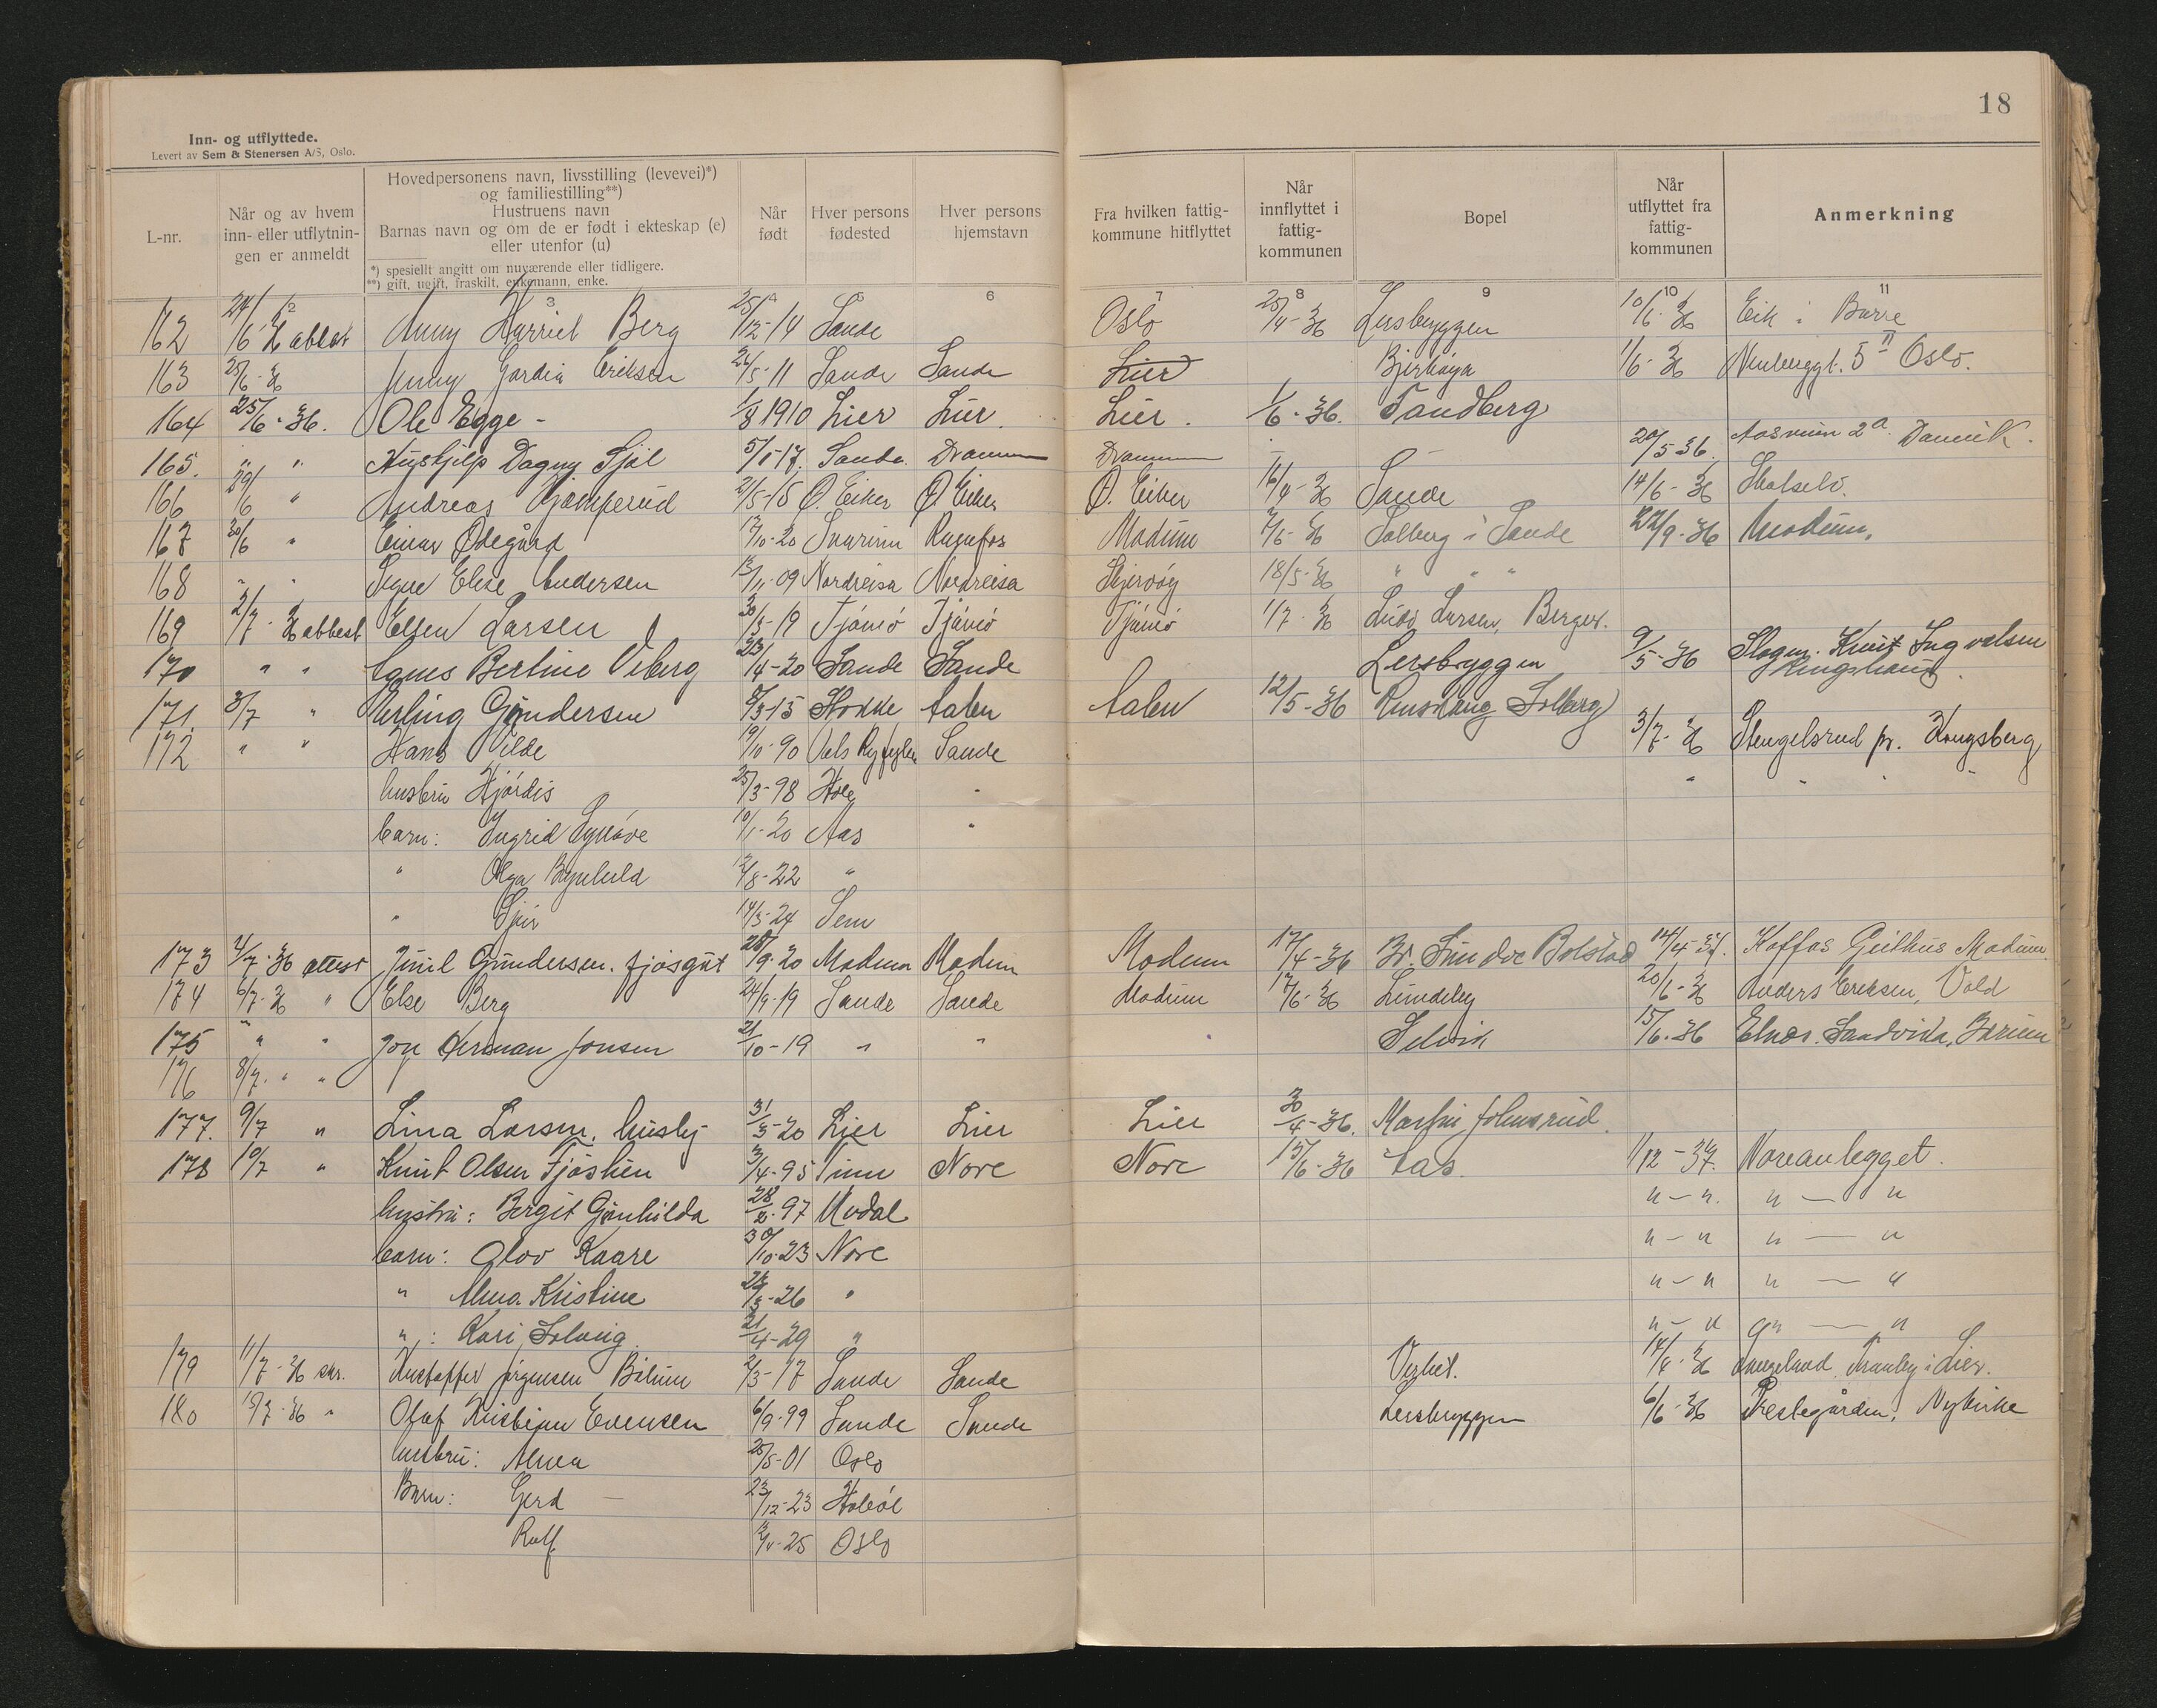 18
Inn- og utflyttede.
Levert av Sem & Stenersen A/S, Oslo.
L-nr.
Når og av hvem inn- eller utflytnin- gen er anmeldt
Hovedpersonens navn, livsstilling (levevei)*)
og familiestilling**)
Hustruens navn
Barnas navn og om de er født i ekteskap (e)
eller utenfor (u)
*) spesiellt angitt om nuværende eller tidligere.
**) gift, ugift, fraskilt, enkemann, enke.
Når født
Hver persons fødested
Hver persons hjemstavn
Fra hvilken fattig- kommune hitflyttet
Når innflyttet i fattig- kommunen
Bopel
Når utflyttet fra fattig- kommunen
Anmerkning
3 6 7 8 9 10 11
162 24/6-36 Anny Harriet Berg 25/12-14 Sande Oslo 25/4-36 Lersbryggen 10/6-36 Eik i Borre
163 25/6-36 Jenny Gardia Eriksen 26/5-11 Sande Sande Lier Bjerkøya 1/6-36 5 II Oslo.
164 25/6-36. Ole Egge - 1/8 1910 Lier Lier. Lier. 1/6-36. Sandberg
165. " " Hushjelp Dagny Sjøl 5/1-17. Sande. Drammen Drammen - - 20/5 36. 2a Damvik.
166 29/6 " Andreas 2/5-15 Ø. Eiker Ø. Eiker Ø. Eiker 16/4-36 Sande 14/6-36 Skotselv.
167 30/6 " Einar Ødegård 17/10-20 Snarum Modum 2/5-36 Solberg i Sande 22/9-36 Modum.
168 " " Signe Elise Andersen 13/11-09 Nordreisa Nordreisa Skjervøy 18/5-36 " " "
169 2/7-36 attest Elsen Larsen 20/3-19 Tjømø Tjømø Tjømø 1/7-36 Ludv Larsen, Berger.
170 " " Agnes Bertine Viberg 23/4-20 Sande Sande Lersbryggen 9/5-36 Slagen. Knut Ingvalsen Ringshaug.
171. 3/7 " Erling Gundersen 8/3-15 Stokke Aalen Aalen 12/5-36 Solberg
172 " " Hans Vilde 19/10-90 Sande 3/7-36 Stengelsrud pr. Kongsberg
hustru Hjørdis 25/3-98 Hole " " " " "
barn: Ingrid Synøve 10/1-20 Aas "
" Olga Brynhild 12/8-22 "
" 14/5-24 Sem
173 4/7-36 attest Juul Gundersen. fjøsgut 28/9-20 Modum Modum Modum 17/4-36 Br. Sundve Bolstad 14/4-37. Koffas Geithus Modum.
174 6/7-36 " Else Berg 24/9-19 Sande Sande Modum 17/6-36 Lundeby 20/6-36 Anders Eriksen, Vold
175 " " Herman Jonsen 21/10-19 " " Selvik 15/6-36 Elnes. Sandvika, Bærum
176 8/7. " "
177. 9/7 " Lina Larsen, hushj 31/3-20 Lier Lier Lier 30/4-36. Martin Johnsrud.
178 10/7 " Knut Olsen Fjøslien 3/4-95 Tinn Nore Nore 15/6-36 Aas. 1/12-37. Noreanlegget.
hustru: Bergit Gunhilda 28/2-97 Uvdal "-". " — "
barn: Olov Kaare 30/10-23 Nore "-" " — "
" Alma Kristine 22/3-26 " "-" " — "
" : Kari Solveig 21/4-29 " "-" " — "
179 11/7-36 Kristoffer Jørgensen 2/3-17 Sande Sande 14/8-36 Tranby i Lier.
180 10/7-36 " Olaf Kristian Evensen 6/9-99 Sande Sande Lersbryggen 6/6-36 Prestegården, Nykirke
hustru: Alma 25/5-01 Oslo
Barn: Gerd — 23/12-23 Hobøl
Rolf Oslo